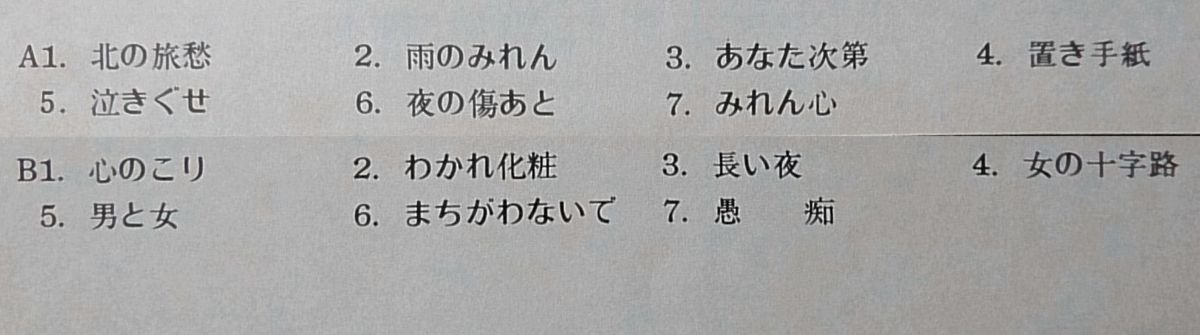 A1. 北の旅愁 2. 雨のみれん 3. あなた次第 4. 置き手紙
5. 泣きぐせ 6. 夜の傷あと 7. みれん心
B1. 心のこり 2. わかれ化粧 3. 長い夜 4. 女の十字路
5. 男と女 6. まちがわないで 7. 愚　　痴